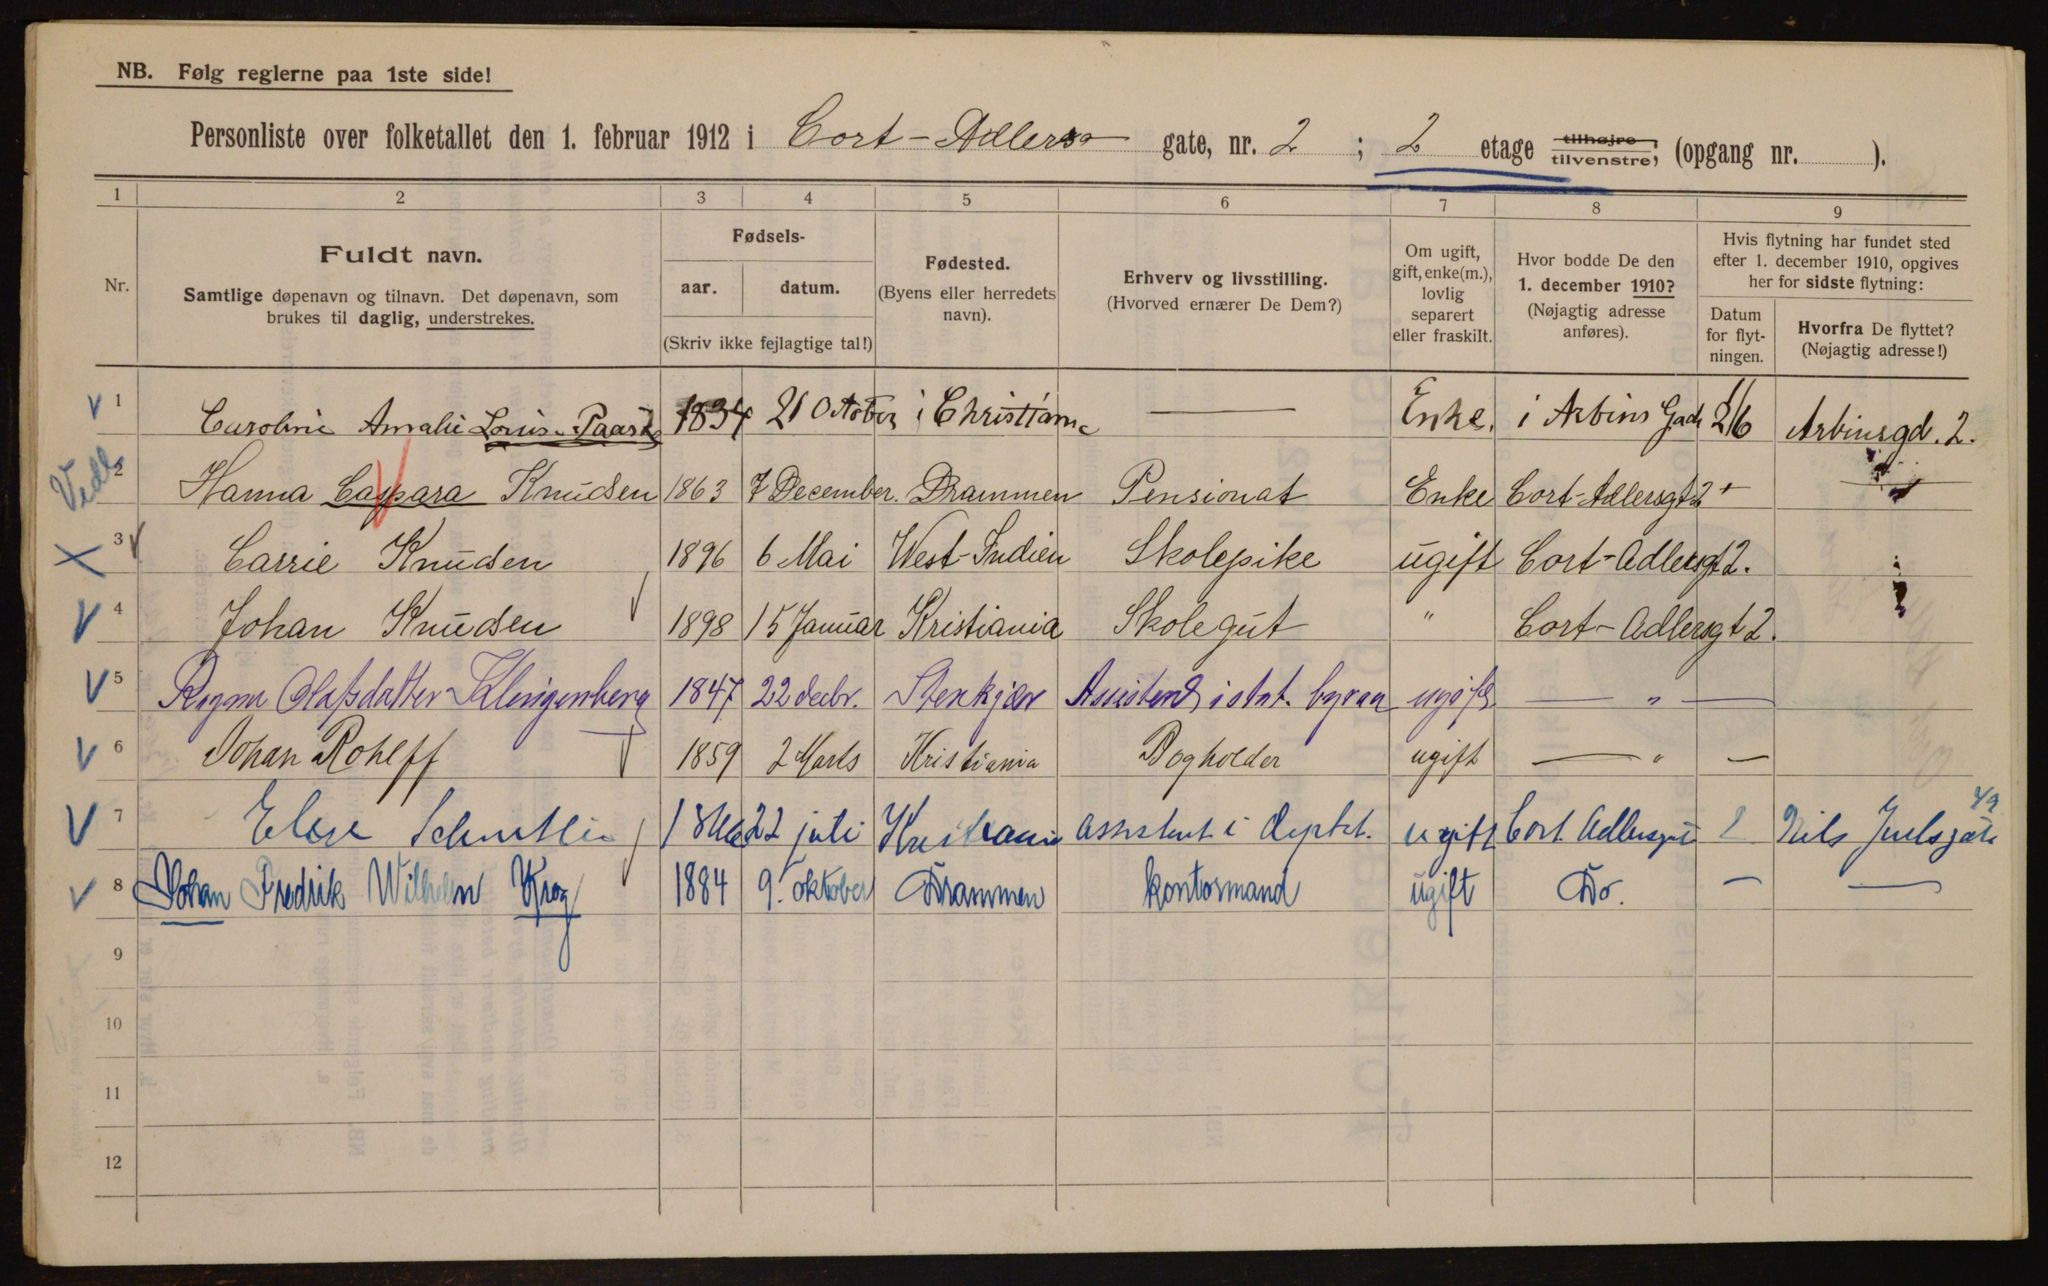 NB. Følg reglerne paa 1ste side!
Personliste over folketallet den 1. februar 1912 i Cort-Adlers gate, nr. 2 ; 2 etage tilhøjre, tilvenstre, (opgang nr. ).
1 2 3 4 5 6 7 8 9
Nr.
Fuldt navn.
Samtlige døpenavn og tilnavn. Det døpenavn, som
brukes til daglig, understrekes.
Fødsels-
aar. datum.
(Skriv ikke fejlagtige tal!)
Fødested.
(Byens eller herredets
navn).
Erhverv og livsstilling.
(Hvorved ernærer De Dem?)
Om ugift,
gift, enke(m.),
lovlig
separert
eller fraskilt.
Hvor bodde De den
1. december 1910?
(Nøjagtig adresse
anføres).
Hvis flytning har fundet sted
efter 1. december 1910, opgives
her for sidste flytning:
Datum
for flyt-
ningen.
Hvorfra De flyttet?
(Nøjagtig adresse!)
1 Caroline Amalie Louise Paaske 1834 21 October i Christiania — Enke. i Arbins Gade 2/6 Arbinsgd. 2.
2 Hanna Caspara Knudsen 1863 7 December. Drammen Pensionat Enke Cort-Adlersgt 2 —
3 Carrie Knudsen 1896 6 Mai West-Indien Skolepike ugift Cort-Adlersgt 2.
4 Johan Knudsen 1898 15 Januar Kristiania Skolegut " Cort-Adlersgt 2.
5 Olafsdatter Klingenberg 1847 22 decbr. Stenkjær Assistent i stat. byraa ugift — " —
6 Johan Rohleff 1859 2 Marts Kristiania Bogholder ugift — " —
7 Else 22 juli Kristiania assistent i ugift Cort Adlersgt Nils Juelsgate
8 Johan Fredrik Wilhelm Krog 1884 9. oktober Drammen kontormand ugift Do. — —
9
10
11
12